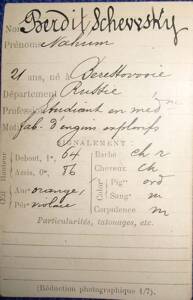 Nom Berditschevsky
Prénoms Nahum
21 ans, né à Berestovoïe
Département Russie
Profession étudiant en med
Motif fab. d'engins explosifs
SIGNALEMENT :
Hauteur Debout, 1m 64 Barbe ch r
Assis, 0m 86 Cheveux ch
Œil Aur orange Color Pig re ord
Pér violacé Sang m
Corpulence m
Particularités, tatouages, etc.
(Réduction photographique 1/7).